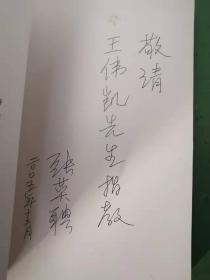 敬请
王伟凯先生指教
张英聘
二〇〇五年十二月